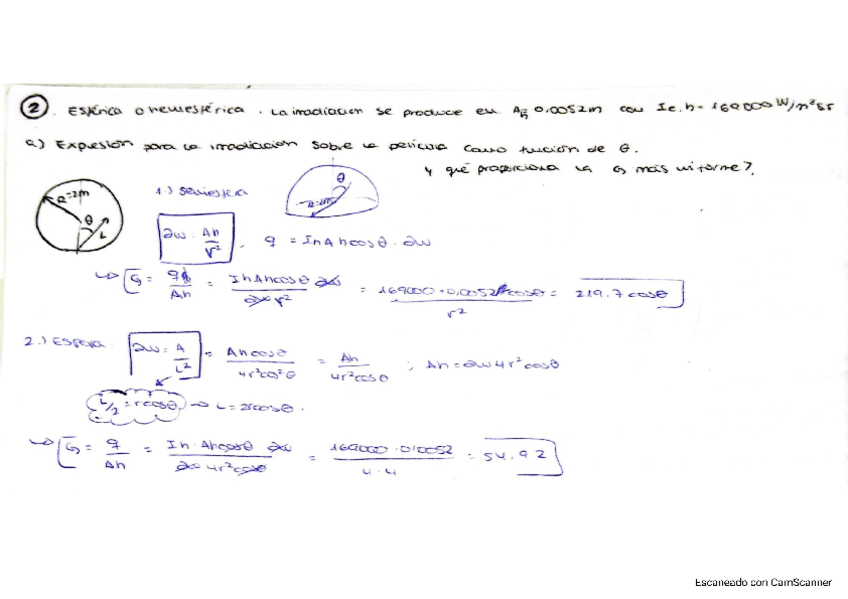 2. Esférica o hemiesférica. La irradiación se produce en Ah 0,0052m con Ic,h = 169000 W/m²sr
a) Expresión para la irradiación sobre la película como función de θ.
y qué proporciona la G más uniforme?
R=2m θ L
1.) semiesfera
θ R=2m
∂w · Ah/r² , q = Ih Ah cosθ · ∂w
↳ G = q/Ah = Ih Ah cosθ ∂w / ∂w r² = 169000 · 0,0052 cosθ / r² = 219.7 cosθ
2.) Esfera ∂w = A/L² = Ah cosθ / 4r² cos²θ = Ah / 4r² cosθ ; Ah = ∂w 4r² cosθ
L/2 = r cosθ → L = 2r cosθ.
↳ G = q/Ah = Ih · Ah cosθ ∂w / ∂w 4r² cosθ = 169000 · 0,0052 / 4·4 = 54.92
Escaneado con CamScanner